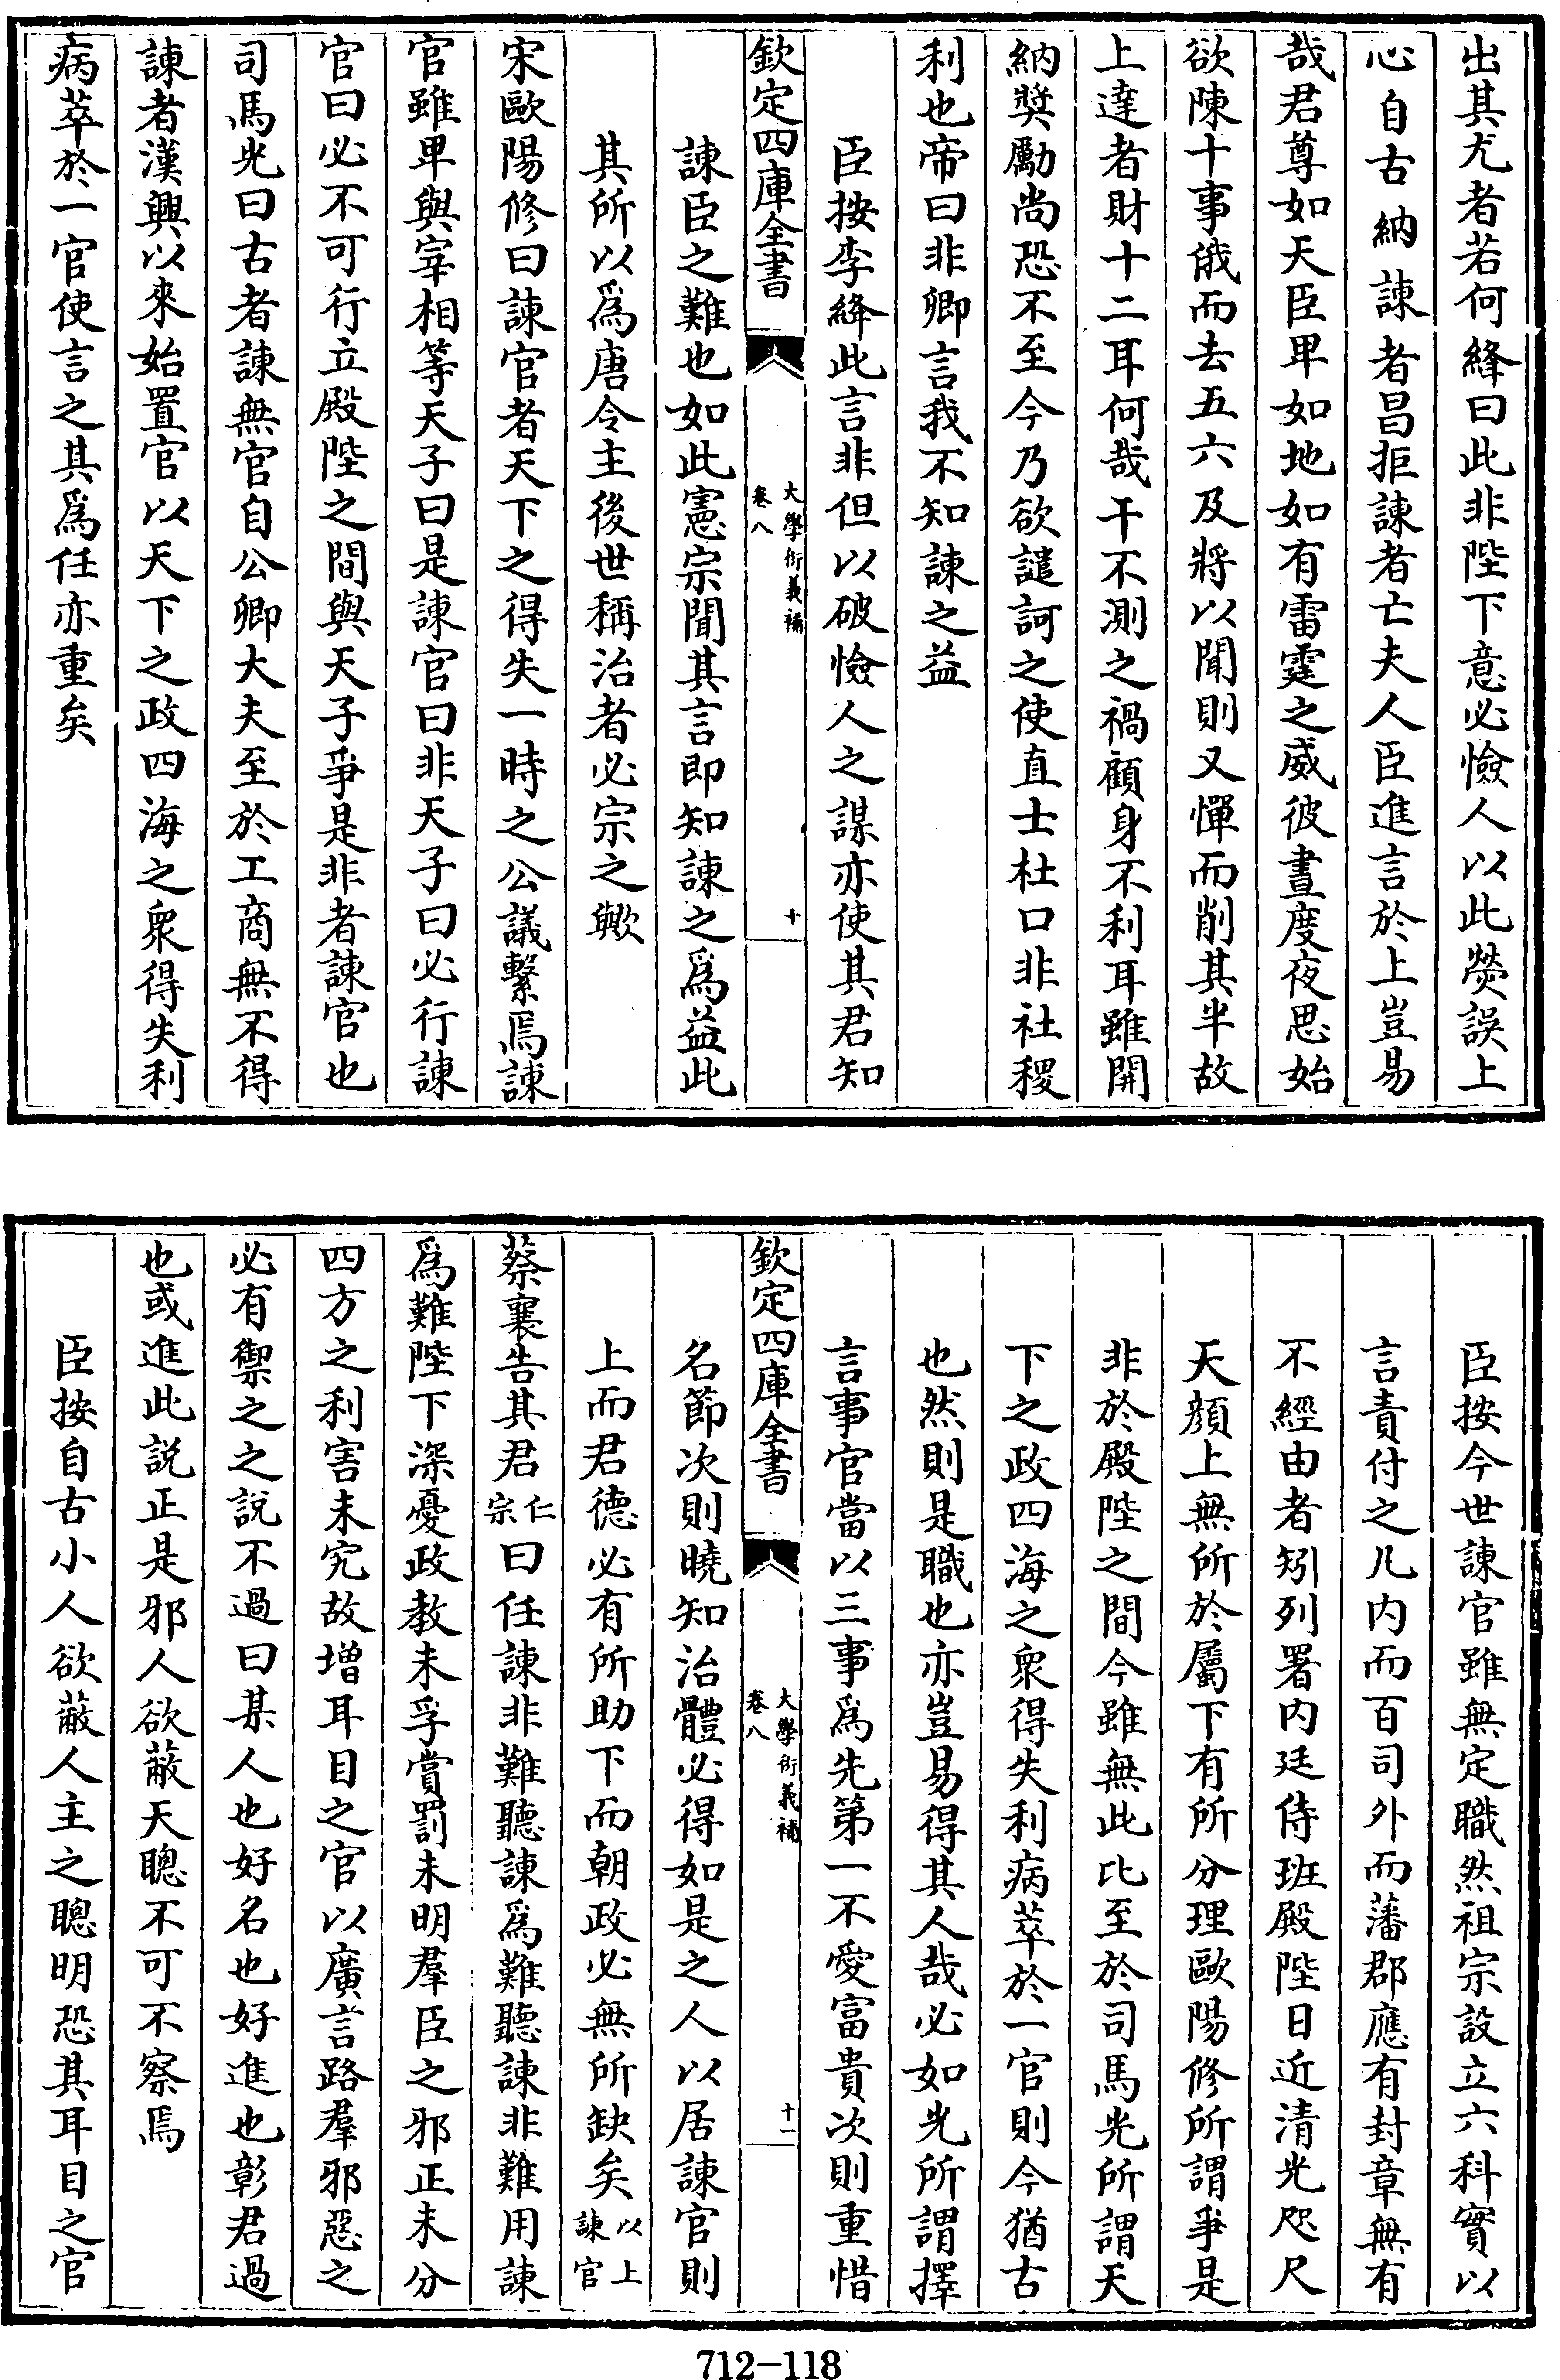 出其尤者若何絳曰此非陛下意必憸人以此熒誤上
心自古納諫者昌拒諫者亡夫人臣進言於上豈易
哉君尊如天臣卑如地如有雷霆之威彼晝度夜思始
欲陳十事俄而去五六及將以聞則又憚而削其半故
上達者財十二耳何哉干不測之禍顧身不利耳雖開
納奬勵尚恐不至今乃欲譴訶之使直士杜口非社稷
利也帝曰非卿言我不知諫之益
臣按李絳此言非但以破憸人之謀亦使其君知
欽定四庫全書
大學衍義補
卷八
十
諫臣之難也如此憲宗聞其言即知諫之爲益此
其所以爲唐令主後世稱治者必宗之歟
宋歐陽修曰諫官者天下之得失一時之公議繫焉諫
官雖卑與宰相等天子曰是諫官曰非天子曰必行諫
官曰必不可行立殿陛之間與天子爭是非者諫官也
司馬光曰古者諫無官自公卿大夫至於工商無不得
諫者漢興以來始置官以天下之政四海之衆得失利
病萃於一官使言之其爲任亦重矣
臣按今世諫官雖無定職然祖宗設立六科實以
言責付之凡内而百司外而藩郡應有封章無有
不經由者矧列署内廷侍班殿陛日近清光咫尺
天顔上無所於屬下有所分理歐陽修所謂爭是
非於殿陛之間今雖無此比至於司馬光所謂天
下之政四海之衆得失利病萃於一官則今猶古
也然則是職也亦豈易得其人哉必如光所謂擇
言事官當以三事爲先第一不愛富貴次則重惜
欽定四庫全書
大學衍義補
卷八
十一
名節次則曉知治體必得如是之人以居諫官則
上而君德必有所助下而朝政必無所缺矣以上諫官
蔡襄告其君仁宗曰任諫非難聽諫爲難聽諫非難用諫
爲難陛下深憂政教未孚賞罰未明羣臣之邪正未分
四方之利害未究故增耳目之官以廣言路羣邪惡之
必有禦之之說不過曰某人也好名也好進也彰君過
也或進此説正是邪人欲蔽天聰不可不察焉
臣按自古小人欲蔽人主之聰明恐其耳目之官
712-118